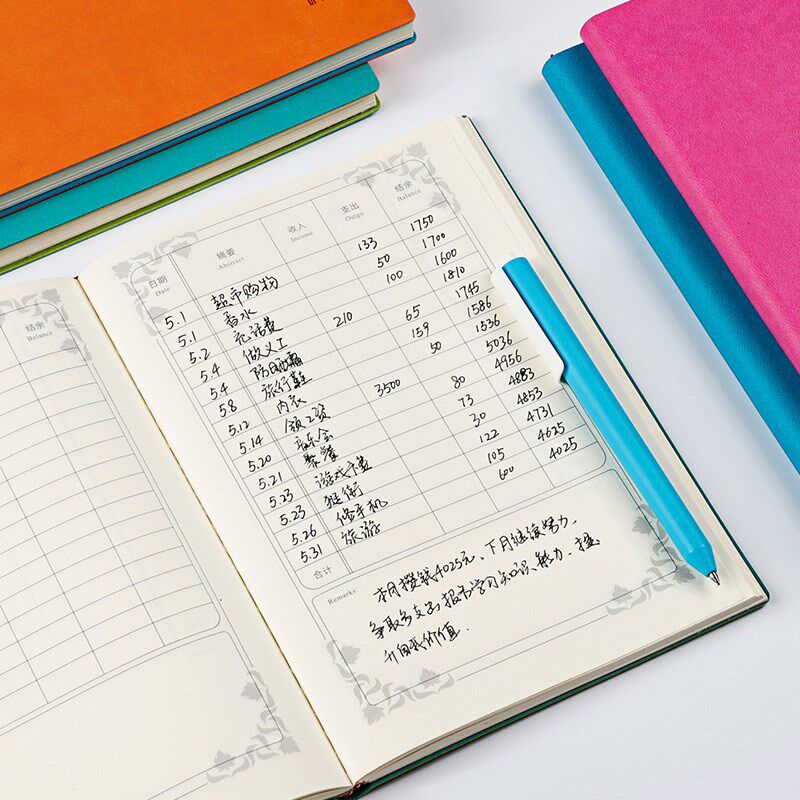 结余
Balance
日期 摘要 收入 支出 结余
Date Abstract Income Outgo Balance
5.1 超市购物 133 1750
5.1 香水 50 1700
5.2 充话费 100 1600
5.4 做义工 210 1810
5.4 防晒霜 65 1745
5.8 旅行鞋 159 1586
5.12 内衣 50 1536
5.14 领工资 3500 5036
5.20 音乐会 80 4956
5.21 聚餐 73 4883
5.23 游戏卡费 30 4853
5.23 逛街 122 4731
5.26 修手机 105 4625
5.31 旅游 600 4025
合计
Remarks:
本月攒钱4025元、下月继续努力,
争取多支出报名学习知识、能力、提
升自我价值.